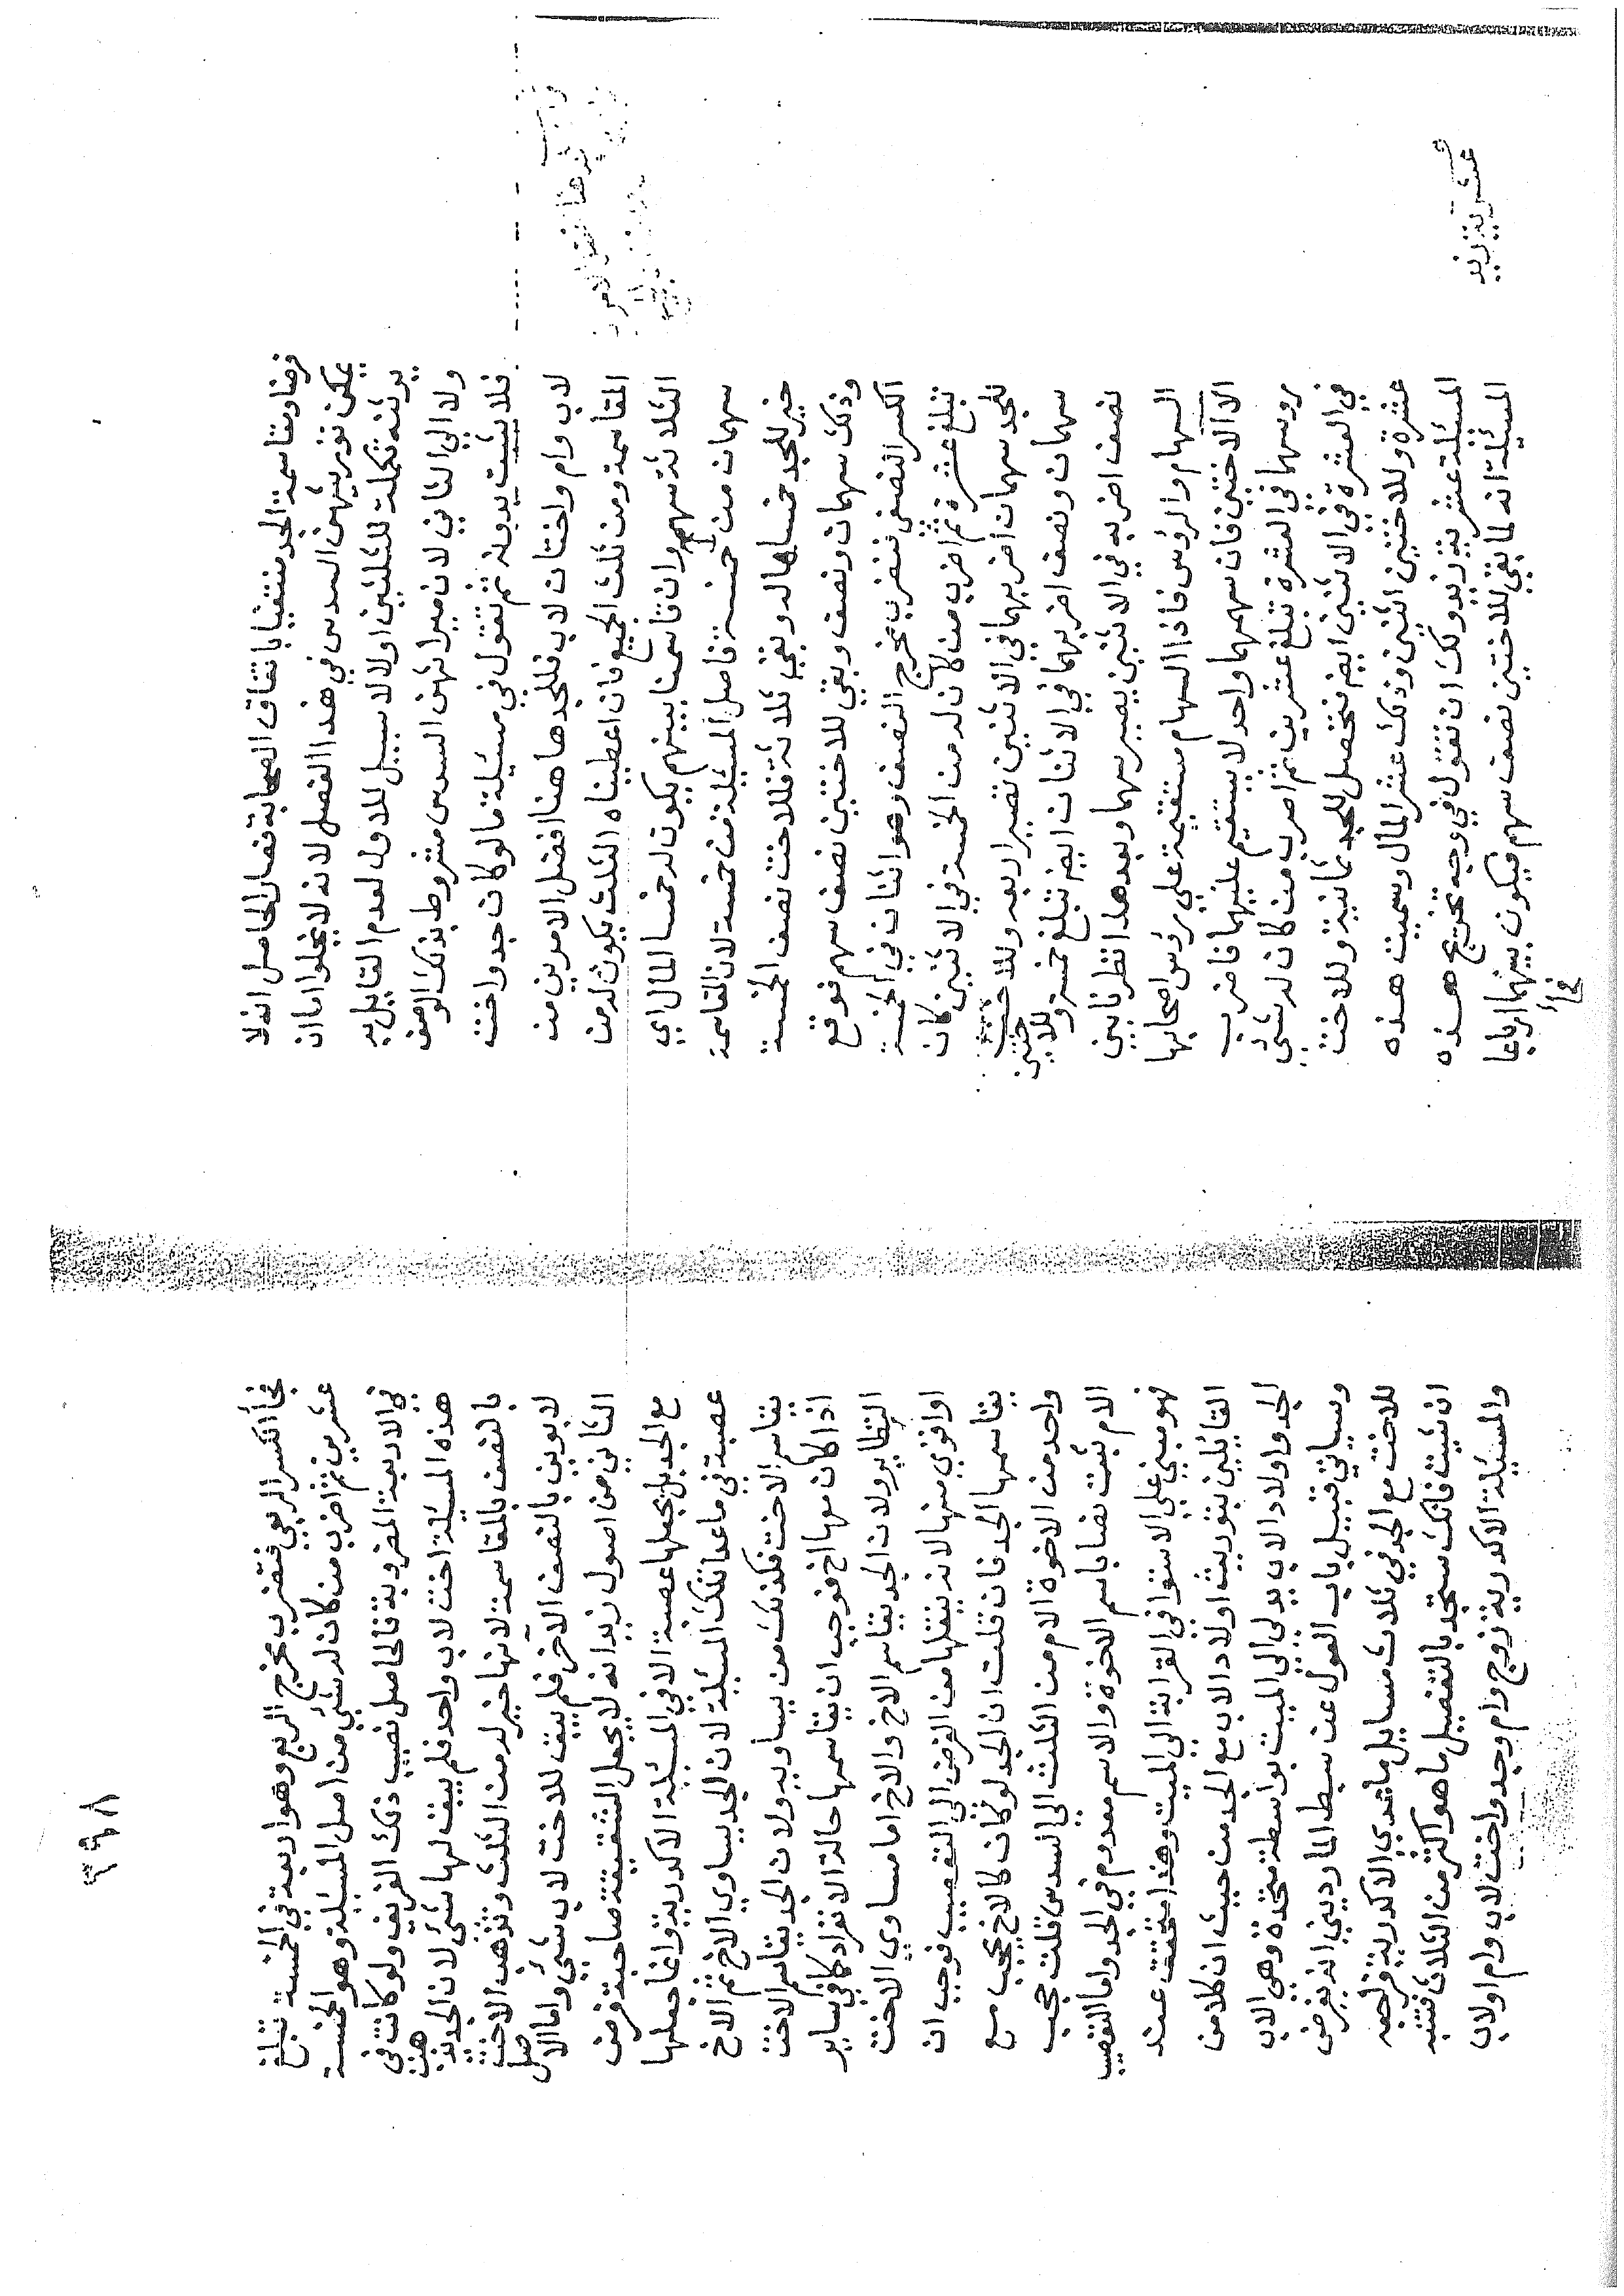 فرضا ومقاسمة الجد منتفيا باتفاق الصحابة فصار الحاصل انه لا
يمكن توريثهن السدس في هذا الفصل لانه لا يخلوا اما ان
يرثنه تكملة للثلثين اولا لا سبيل للاول لعدم القايل به
ولا الي الثاني لان ميراثهن السدس مشروط بذلك الوصف
فلا يثبت بدونه ثم تقول في مسئلة ما لو كان جد واخت
لاب وام واختان لاب فللجد هاهنا افضل الامرين من
المقاسمة ومن ثلث الجميع فان اعطيناه الثلث يكون له من
الثلاثة سهم وان قاسمنا بينهم يكون له خمسا المال اي
سهمان من خمسة فاصل المسئلة من خمسة لان المقاسمة
خير للجد خمساها له وبقي ثلاثة فللاخت نصف الخمسة
وذلك سهمان ونصف وبقي للاختين نصف سهم فوقع
الكسر النصفي فنضرب مخرج النصف وهو اثنان في الخمسة
تبلغ عشرة ثم اضرب من كان له من الخمسة في الاثنين كان
للجد سهمان اضربهما في الاثنين تصير اربعه وللاخت
سهمان ونصف اضربهما في الاثنان ايضا تبلغ خمسة وللاختين
نصف اضربه في الاثنين يصير سهما وبعد هذا نظرنا بين
السهام والرؤس فاذا السهام مستقيمة علي رؤس اصحابها
الا الاختين فان سهمهما واحد لا يستقيم عليهما فاضرب
رؤسهما في العشرة تبلغ عشرين ثم اضرب من كان له شي
في العشرة في الاثنين ايضا فتحصل للجد ثمانية وللاخت
عشرة وللاختين اثنين وذلك عشر المال وسميت هذه
المسئلة عشرية زيد ولك ان تقول في وجه تخريج هذه
المسئلة انه لما بقي للاختين نصف سهم فيكون بينهما ارباعا
فجأ
عشرية زيد
٣٩٨
فجأ الكسر الربعي فتضرب مخرج الربع وهو اربعة في الخمسة تبلغ
عشرين ثم اضرب من كان له شئ من اصل المسئلة وهو الخمسة
في الاربعة المضروبة فالحاصل نصيب ذلك الفريق ولو كانت في
هذه المسئلة اخت لاب واحد فلم يبق لها شئ لان الجد يذهب
بالنصف بالمقاسمة لانها خير له من الثلث وتذهب الاخت
لابوين بالنصف الآخر فلم يبق للاخت لاب شئ واما الاصل
الثاني من اصول زيد انه لا يجعل الشقيقة صاحبة فرض
مع الجد بل يجعلها عصبة الا في المسئلة الاكدرية وانما جعلها
عصبة في ما عدا تلك المسئلة لان الجد يساوي الاخ ثم الاخ
يقاسم الاخت فكذلك من يساويه ولان الجد يقاسم الاخت
اذا كان معها اخ فوجب ان يقاسمها حالة الانفراد كما في ساير
النظاير ولان الجد يقاسم الاخ والاخ اما مساوي الاخت
او اقوي منها لانه ينقلها من الفرض الي التعصيب فوجب ان
يقاسمها الجد فان قلت ان الجد لو كان كالاخ يحجب مع
واحد من الاخوة الام من الثلث الي السدس قلت حجب
الام يثبت نصا باسم الاخوة والاسم معدوم في الجد واما التعصيب
فهو مبني علي الاستوا في القرابة الي الميت وهذا متحقق عند
القائلين بتوريث اولاد الاب مع الجد من حيث ان كلا من
الجد واولاد الاب يدلي الي الميت بواسطة متحدة وهي الاب
وسياتي قبيل باب العول عن سبط المارديني انه يفرض
للاخت مع الجد في ثلاث مسايل ماعدي الاكدرية فراجعه
ان شيت فانك ستجد بالتفصيل ما هو اكثر من الثلاث فتنبه
والمسئلة الاكدرية زوج وام وجد واخت لاب وام اولاب